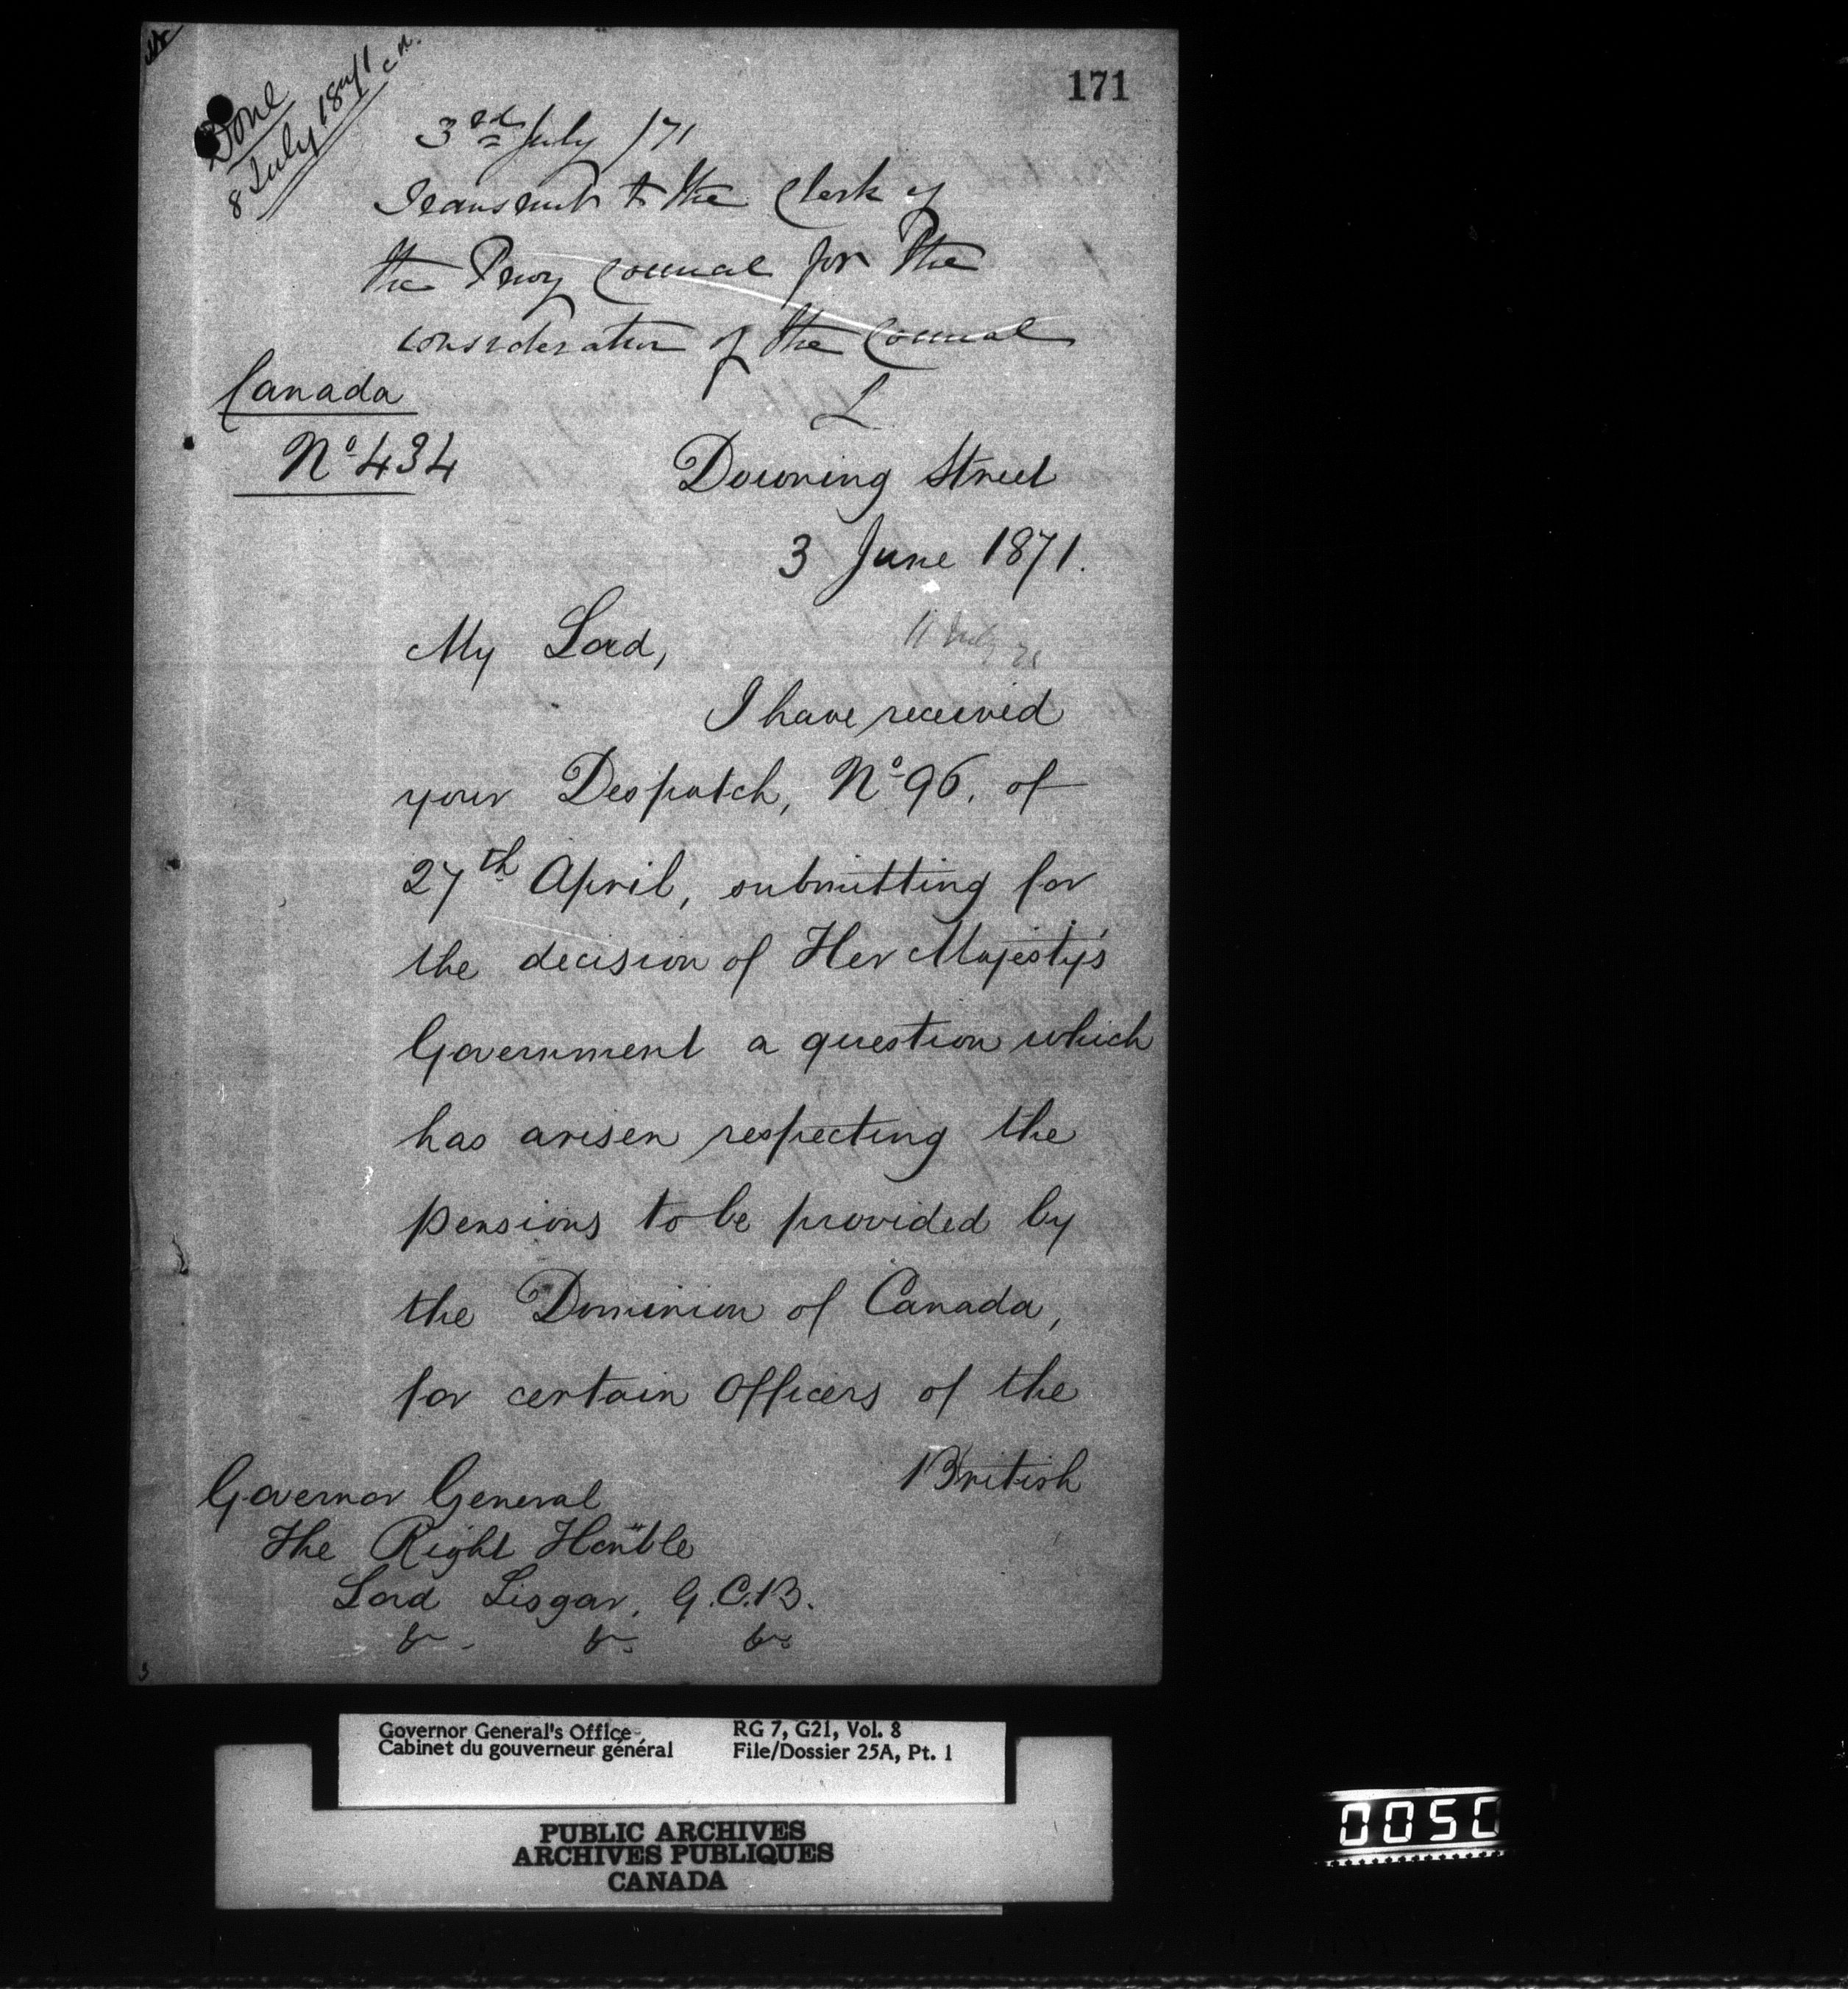 171
Done
8 July 1871
3rd July /71
Transmit to the Clerk of
the Privy Council for the
consideration of the Council
L
Canada
No 434
Downing Street
3 June 1871.
11 July 71
My Lord,
I have received
your Despatch, No 96. of
27th April, submitting for
the decision of Her Majesty's
Government a question which
has arisen respecting the
pensions to be provided by
the Dominion of Canada,
for certain Officers of the
British
Governor General
The Right Honble
Lord Lisgar, G.C.B.
&c. &c. &c.
Governor General's Office
Cabinet du gouverneur général
RG 7, G21, Vol. 8
File/Dossier 25A, Pt. 1
PUBLIC ARCHIVES
ARCHIVES PUBLIQUES
CANADA
0050